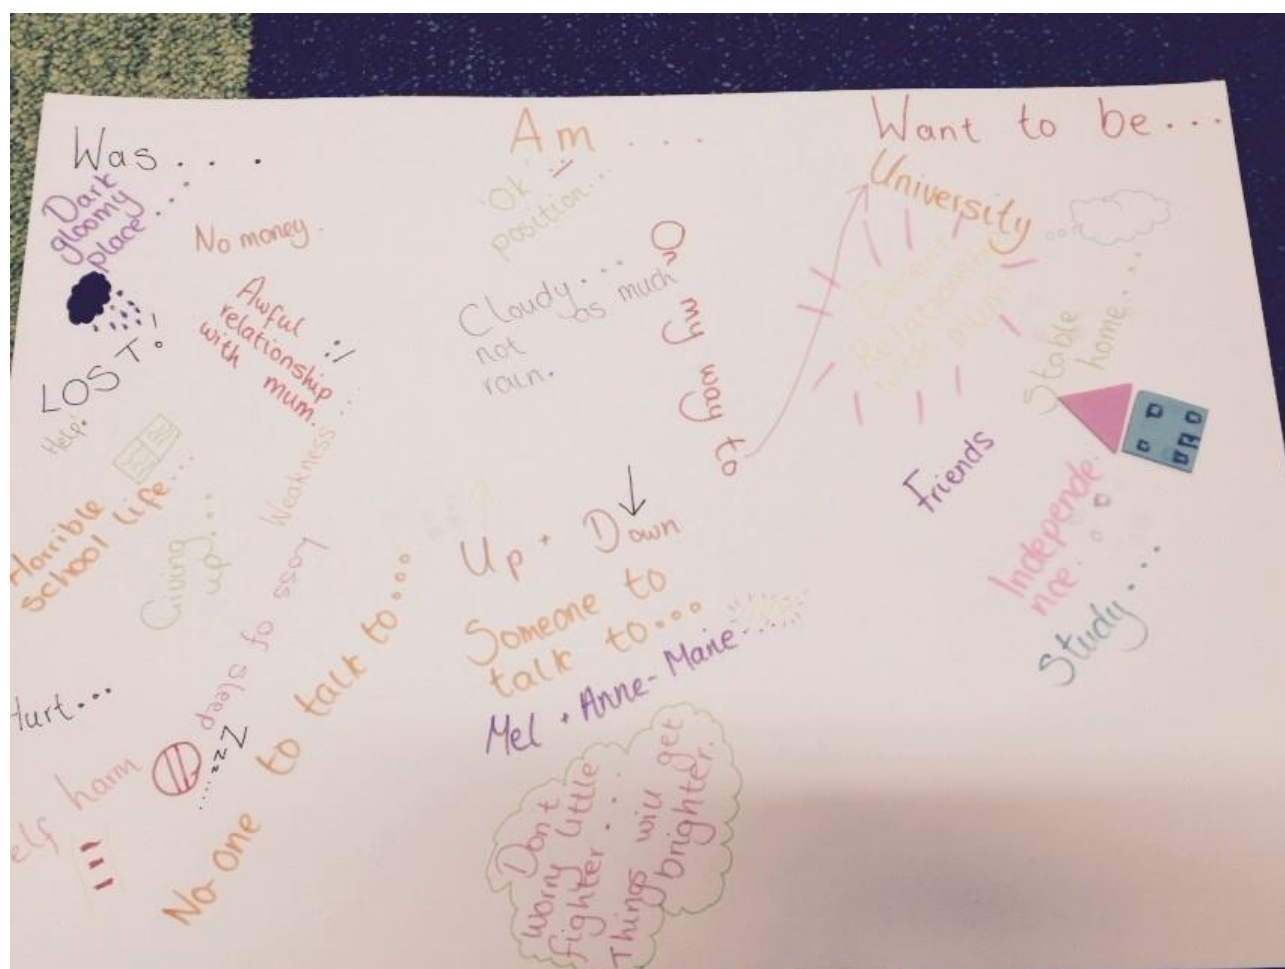 Was....
Dark
gloomy
place....
No money.
LOST!
Help!
Awful
relationship
with mum.
:/
Horrible
school life...
Giving
up....
Weakness...
Loss of sleep
....zzZ
Hurt...
elf harm
No one to talk to...
Am....
'Ok'
position...
Cloudy...
not as much
rain.
On my way to
Up + Down
Someone to
talk to...
Mel + Anne-Marie
Don't
worry little
fighter....
Things will get
brighter.
Want to be...
University
Decent
Relationship
with mum
Stable
home....
Friends
Independe
nce.
Study....